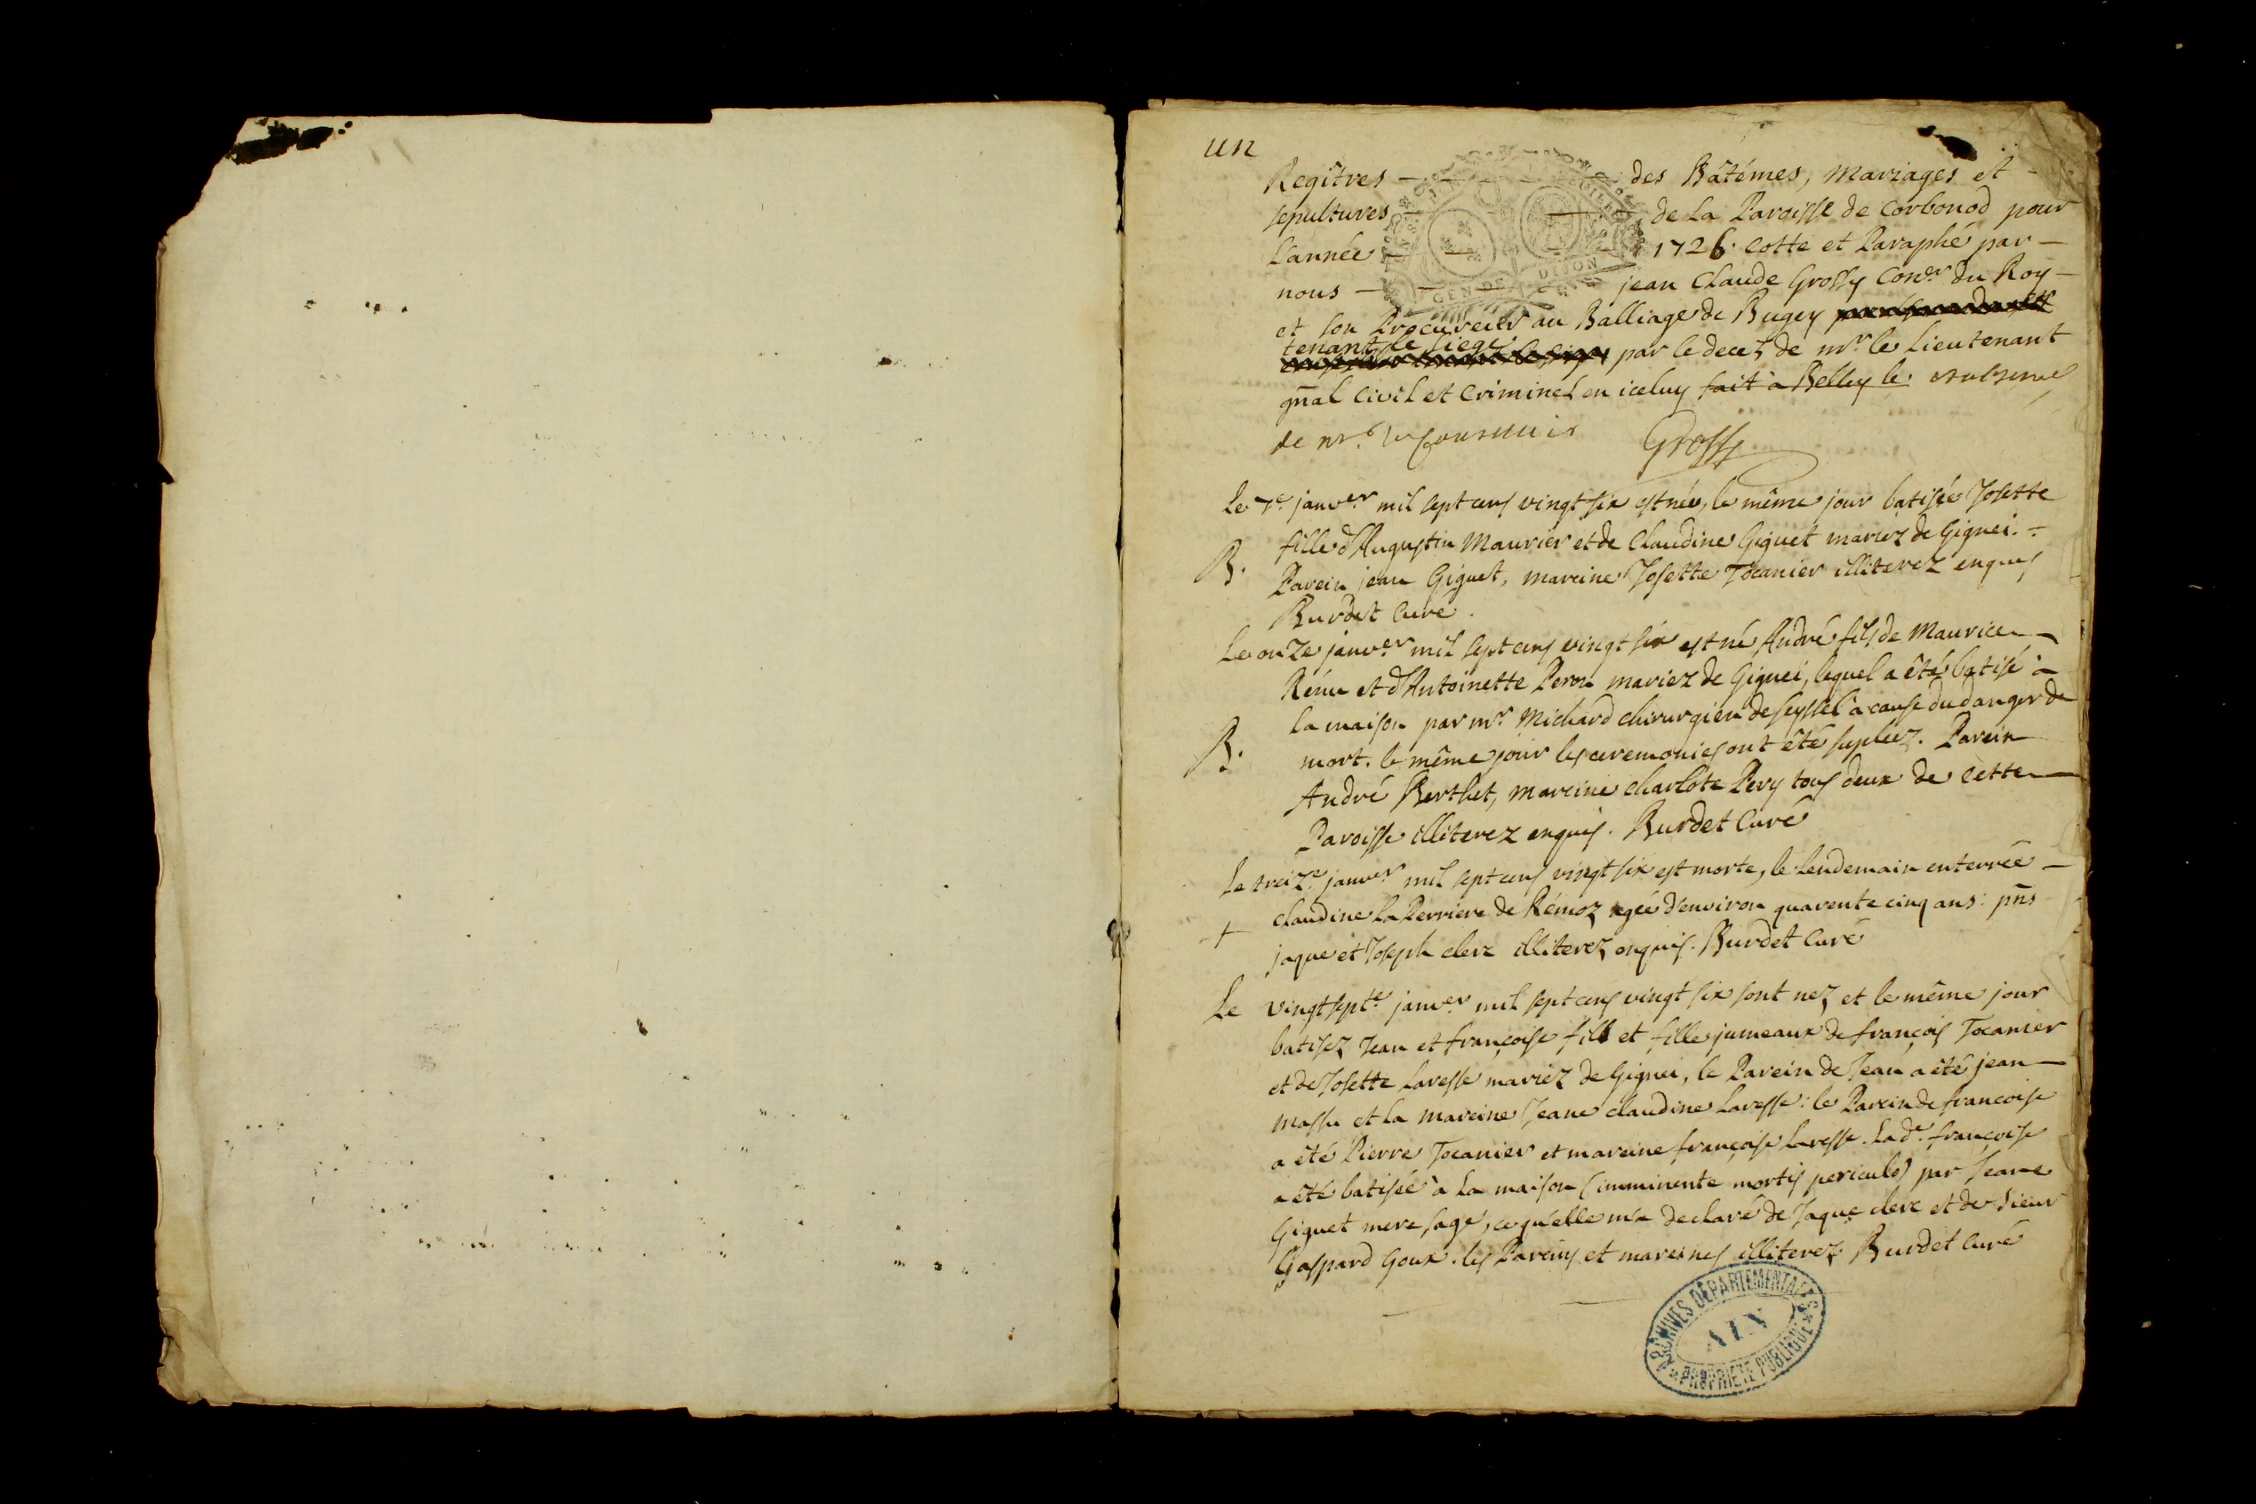 un
Regîtres — des Batémes, mariages et —
sepultures — de La Paroisse de Corbonod pour
L'année — 1726. Cotte et Paraphé par —
nous — jean Claude Grossy Coner du Roy —
et son Procureur au Balliage de Bugey
tenant le siege par le decez de mr. le Lieutenant
gñal Civil et Criminel en iceluy fait à Belley le.
de mr.
Grossy
GEN DE DIJON
Le 7e. janver mil sept cens vingt six est née, le même jour batisée Josette
fille d'Augustin Maurier et de Claudine Giguet mariez de Gignei. —
B.
Parein jean Giguet, mareine Josette Tocanier illiterez enquis
Burdet Curé.
Le onze janver mil sept cens vingt six est né André fils de Maurice —
Rému et d'Antoinette Peron mariez de Gignei, lequel a été batisé à
la maison par mr Michard chirurgien de seyssel à cause du danger de
B.
mort. le même jour les ceremonies ont été supleez. Parein
André Berthet, mareine charlote Pery tous deux de cette —
Paroisse illiterez enquis. Burdet Curé
Le treize. janver mil sept cens vingt six est morte, le lendemain enterrée —
claudine La Perriere de Rémoz agée d'environ quarente cinq ans: pñs
+
jaque et Joseph clerc illiterez enquis. Burdet Curé
Le vingt septe janver mil sept cens vingt six sont nez et le même jour
batisez Jean et françoise fils et fille jumeaux de françois Tocanier
et de Josette Laresse mariez de Gignei, le Parein de Jean a été jean —
massu et la mareine Jeane claudine Laresse: le Parein de francoise
a été Pierre Tocanier et mareine françoise Laresse. Lade. françoise
a été batisée à la maison (imminente mortis periculo) par Jeane
Giguet mere sage, ce qu'elle m'a declaré de Jaque clerc et de Sieur
Gaspard Goux. les Pareins et mareines illiterez. Burdet Curé
ARCHIVES DEPARTEMENTALES
AIN
PROPRIETE PUBLIQUE